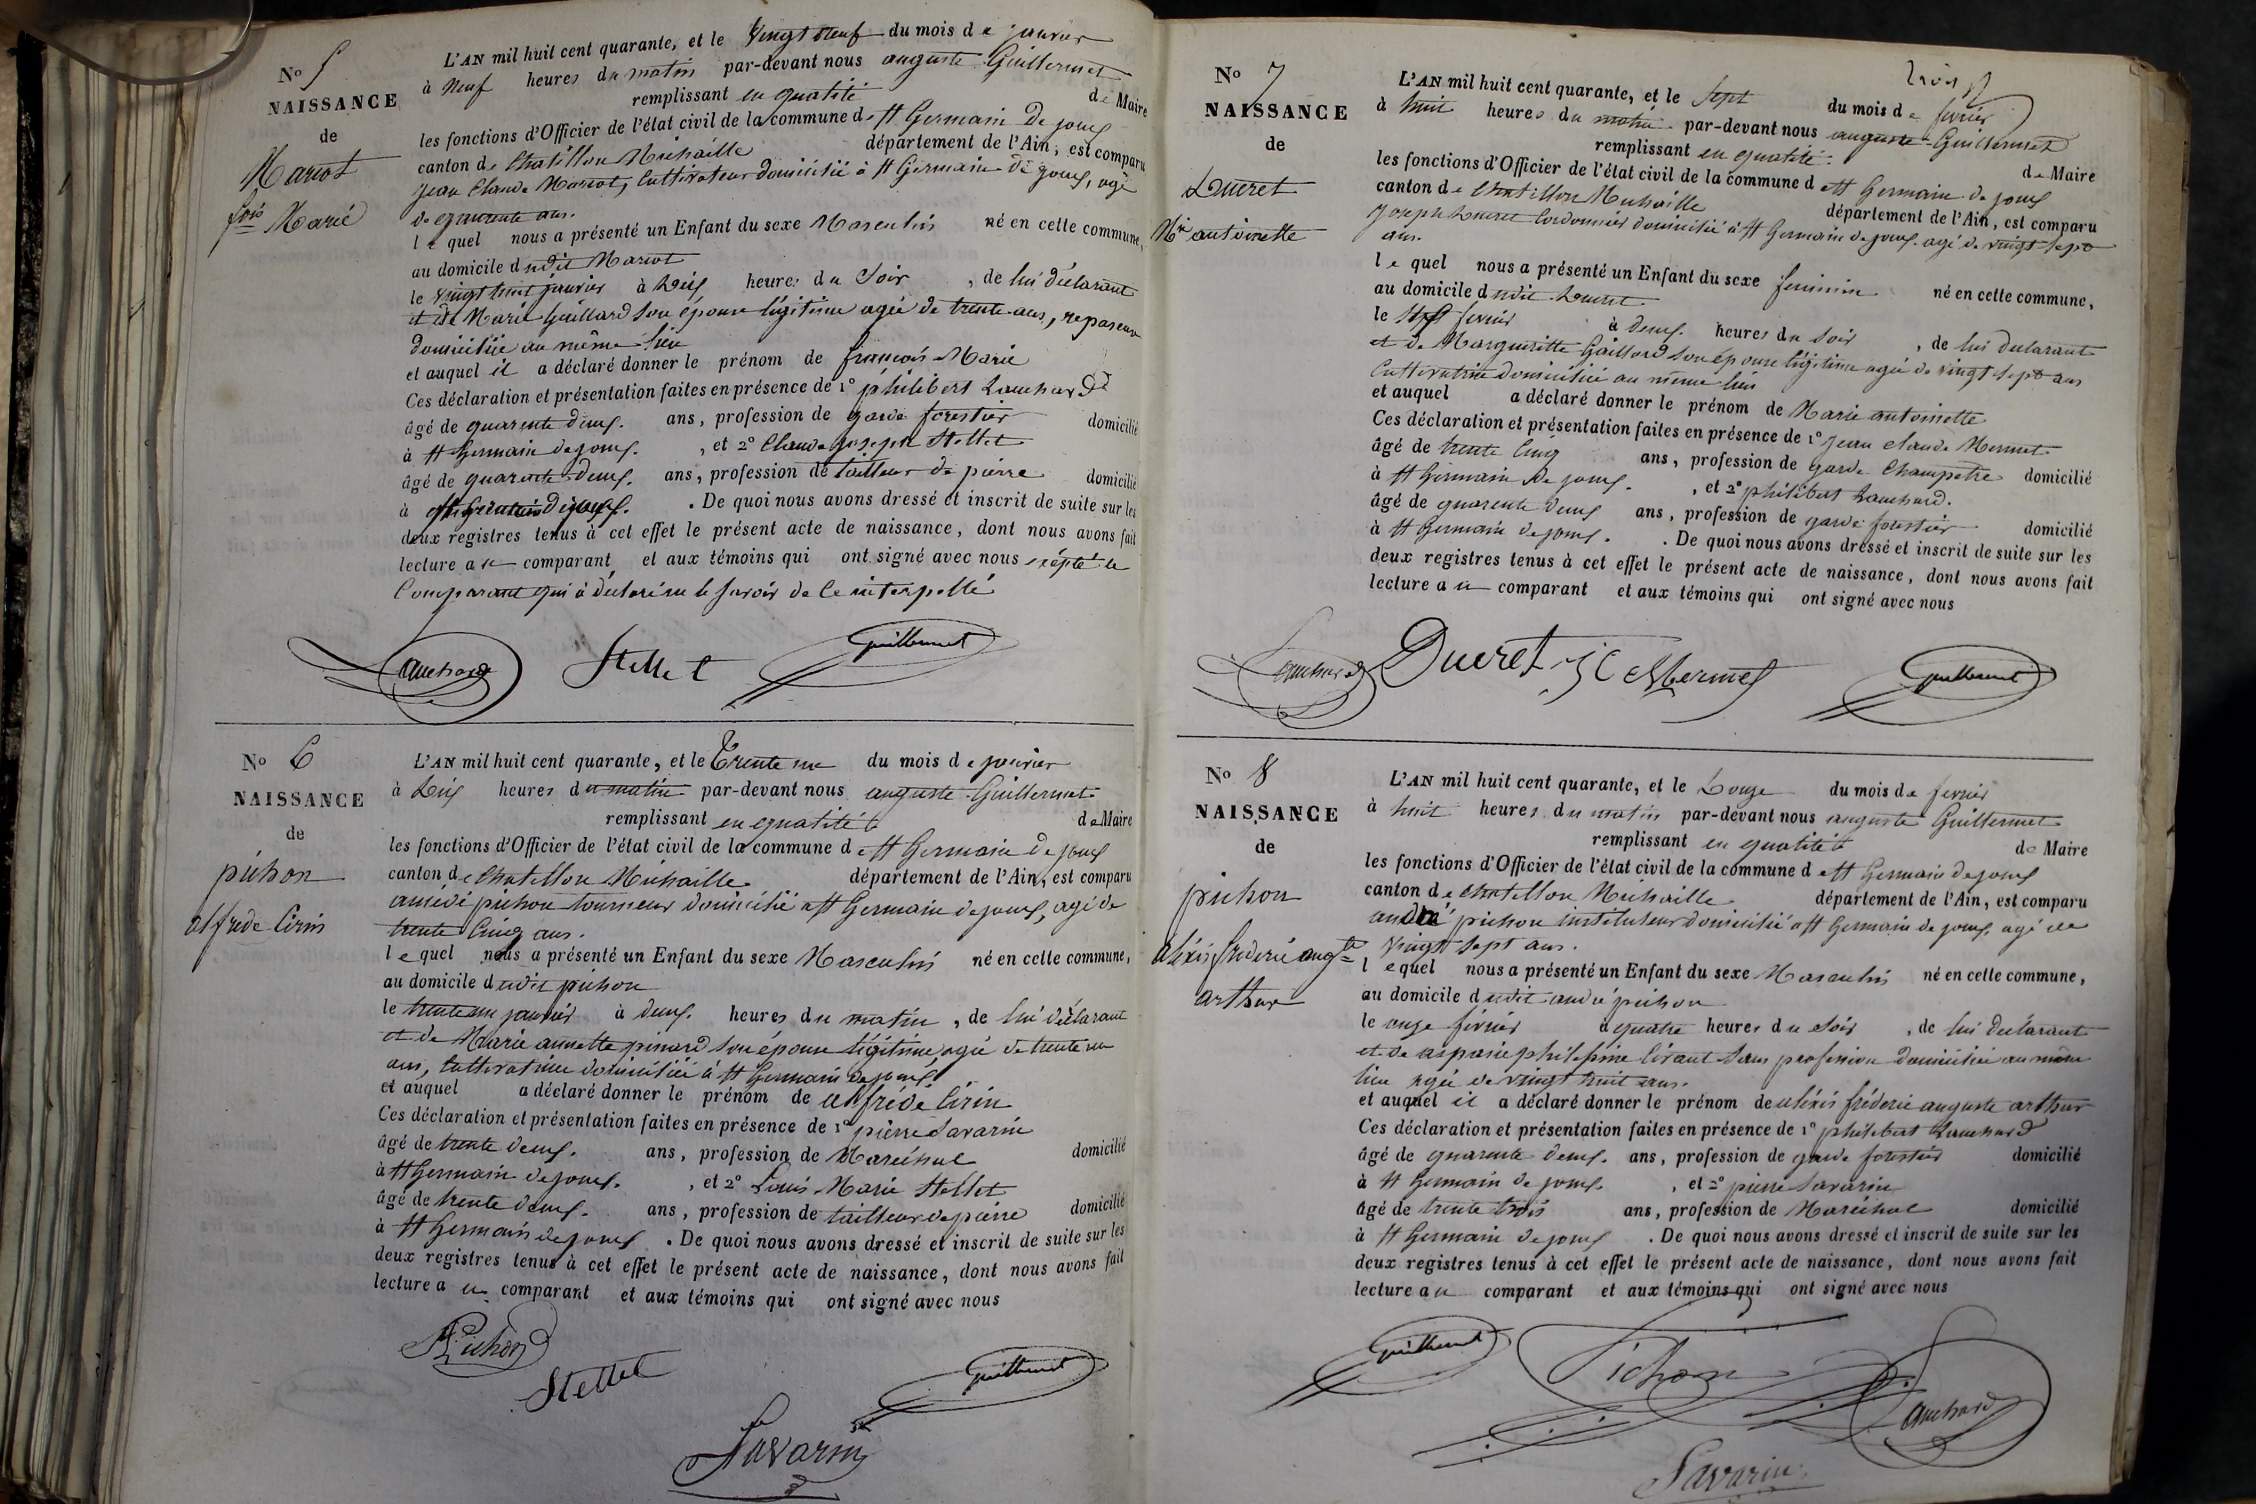 No 5
NAISSANCE
de
Mariot
fois Marie
L'AN mil huit cent quarante, et le Vingt neuf du mois de janvier
à neuf heures du matin par-devant nous auguste Guillermet
remplissant en qualité de Maire
les fonctions d'Officier de l'état civil de la commune de St Germain de joux
canton de Chatillon Michaille département de l'Ain, est comparu
jean Claude Mariot, Cultivateur domicilié à St Germain de joux, agé
de quarante ans.
lequel nous a présenté un Enfant du sexe Masculin né en cette commune,
au domicile dudit Mariot
le vingt huit janvier à Dix heures du Soir, de lui déclarant
et de Marie Guillard son épouse légitime agée de trente ans,
domiciliée au même lieu
et auquel il a déclaré donner le prénom de françois Marie
Ces déclaration et présentation faites en présence de 1º philibert Lanchard
âgé de quarente deux. ans, profession de garde forestier domicilié
à St Germain de joux. , et 2º Claude joseph Stellet
âgé de quarente deux. ans, profession de tailleur de pierre domicilié
à St Germain de joux. . De quoi nous avons dressé et inscrit de suite sur les
deux registres tenus à cet effet le présent acte de naissance, dont nous avons fait
lecture au comparant et aux témoins qui ont signé avec nous exépté le
Comparant qui à déclaré ne le savoir de ce interpellé
Lanchard Stellet Guillermet
No 6
NAISSANCE
de
pichon
alfrede Cirin
L'AN mil huit cent quarante, et le Trente un du mois de janvier
à Dix heures du matin par-devant nous auguste Guillermet
remplissant en qualité de Maire
les fonctions d'Officier de l'état civil de la commune de St Germain de joux
canton de Chatillon Michaille département de l'Ain, est comparu
amédé pichon tourneur domicilié a St Germain de joux, agé de
trente Cinq ans.
lequel nous a présenté un Enfant du sexe Masculin né en cette commune,
au domicile dudit pichon
le trente un janvier à deux. heures du matin, de lui déclarant
et de Marie annette pinard son épouse légitime agée de trente un
ans, Cultivatrice domiciliée à St Germain de joux
et auquel a déclaré donner le prénom de alfrédé Cirin
Ces déclaration et présentation faites en présence de 1º pierre Savarin
âgé de trente deux. ans, profession de Maréchal domicilié
à St Germain de joux. , et 2º Louis Marie Stellet
âgé de trente deux. ans, profession de tailleur de pierre domicilié
à St Germain de joux . De quoi nous avons dressé et inscrit de suite sur les
deux registres tenus à cet effet le présent acte de naissance, dont nous avons fait
lecture au comparant et aux témoins qui ont signé avec nous
Pichon
Stellet Guillermet
Savarin
No 7
NAISSANCE
de
Ducret
Mie antoinette
L'AN mil huit cent quarante, et le Sept du mois de février
à huit heures du matin par-devant nous auguste Guillermet
remplissant en qualité de Maire
les fonctions d'Officier de l'état civil de la commune de St Germain de joux
canton de Chatillon Michaille département de l'Ain, est comparu
joseph Ducret Cordonnier domicilié à St Germain de joux. agé de vingt sept
ans.
lequel nous a présenté un Enfant du sexe feminin né en cette commune,
au domicile dudit Ducret
le Sept fevrier à deux. heures du soir, de lui déclarant
et de Marguerite Gaillard son épouse légitime agée de vingt sept ans
Cultivatrice domiciliée au même lieu
et auquel a déclaré donner le prénom de Marie antoinette
Ces déclaration et présentation faites en présence de 1º jean claude Mermet
âgé de trente Cinq ans, profession de garde Champetre domicilié
à St Germain de joux. , et 2º philibert Lanchard.
âgé de quarente deux ans, profession de garde forestier domicilié
à St Germain de joux. . De quoi nous avons dressé et inscrit de suite sur les
deux registres tenus à cet effet le présent acte de naissance, dont nous avons fait
lecture au comparant et aux témoins qui ont signé avec nous
Lanchard Ducret jC Mermet Guillermet
No 8
NAISSANCE
de
pichon
aléxis frederic augte
arthur
L'AN mil huit cent quarante, et le Douze du mois de fevrier
à huit heures du matin par-devant nous auguste Guillermet
remplissant en qualité de Maire
les fonctions d'Officier de l'état civil de la commune de St Germain de joux
canton de Chatillon Michaille département de l'Ain, est comparu
andré pichon instituteur domicilié a St Germain de joux, agé de
Vingt sept ans.
lequel nous a présenté un Enfant du sexe Masculin né en cette commune,
au domicile dudit andré pichon
le onze février à quatre heures du Soir, de lui déclarant
et de aspasie philippine Cirant Sans profession domiciliée au même
lieu agée de vingt huit ans.
et auquel il a déclaré donner le prénom de aléxis fréderic auguste arthur
Ces déclaration et présentation faites en présence de 1º philibert Lanchard
âgé de quarente deux. ans, profession de garde forestier domicilié
à St Germain de joux. , et 2º pierre Savarin
âgé de trente trois ans, profession de Maréchal domicilié
à St Germain de joux . De quoi nous avons dressé et inscrit de suite sur les
deux registres tenus à cet effet le présent acte de naissance, dont nous avons fait
lecture au comparant et aux témoins qui ont signé avec nous
Guillermet Pichon Lanchard
Savarin